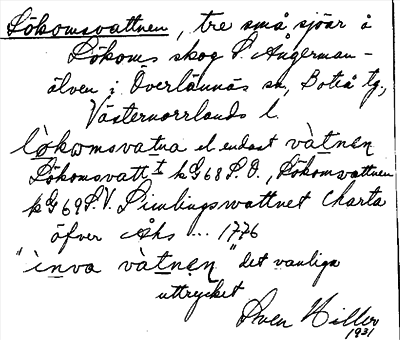 Lökomsvattnen, tre små sjöar å
Lökoms skog S. Ångerman-
älven i Överlännäs sn, Boteå tg.,
Västernorrlands l.
lòkomsvatna el. endast vàtnen
Lökomsvatt kG68S.Ö., Lökomsvattnen
kG69S.V. Simlingswattnet Charta
öfver Åhs ... 1776
"ìnva vàtnen" det vanliga
uttrycket
Sven Hiller
1931